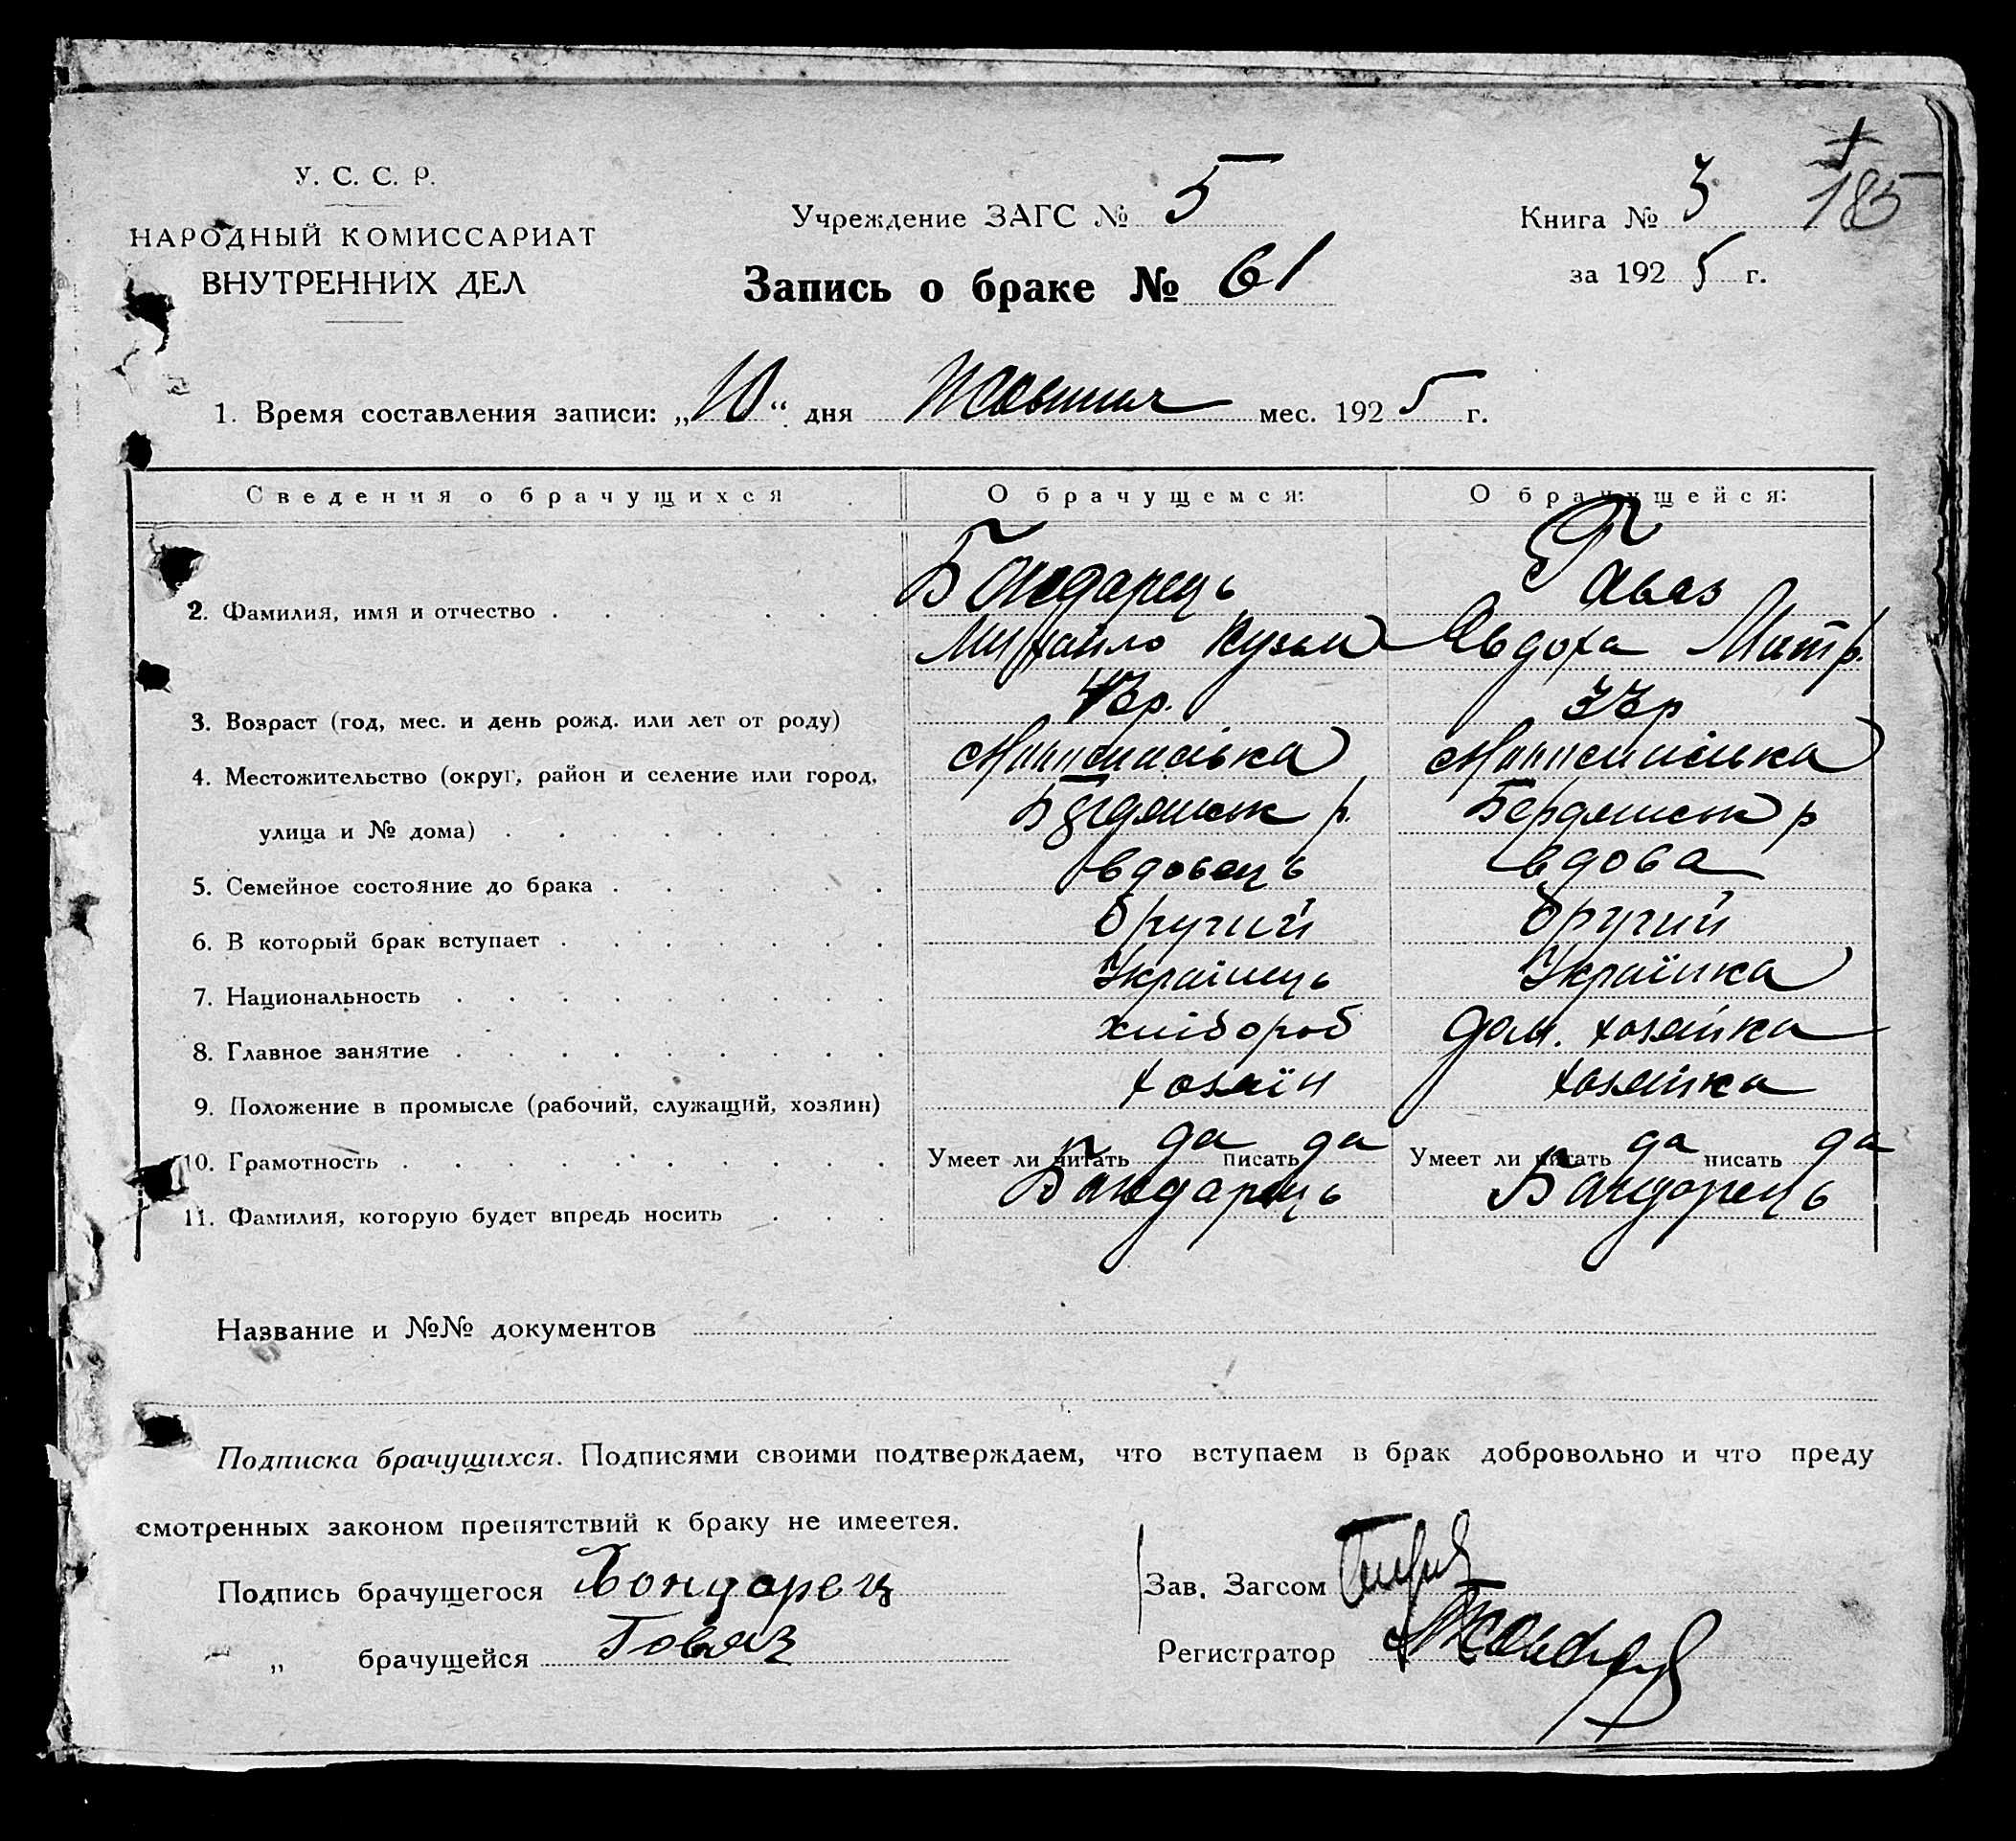 185
У. С. С. Р.
НАРОДНЫЙ КОМИССАРИАТ
ВНУТРЕННИХ ДЕЛ
Учреждение ЗАГС № 5
Книга № 3
Запись о браке № 61
за 1925 г.
1. Время составления записи: „10“ дня Жовтня мес. 1925 г.
Сведения о брачущихся О брачущемся: О брачущейся:
Бондарець
2. Фамилия, имя и отчество
Михайло Кузьм Явдоха Митр.
3. Возраст (год, мес. и день рожд. или лет от роду) 33р
4. Местожительство (округ, район и селение или город,
улица и № дома) р. Бердянськ р
5. Семейное состояние до брака вдовець вдова
6. В который брак вступает другий другий
7. Национальность Українець Українка
8. Главное занятие хлібороб дом. хозяйка
9. Положение в промысле (рабочий, служащий, хозяин) хозяїн хозяйка
10. Грамотность Умеет ли читать да писать да Умеет ли читать да писать да
11. Фамилия, которую будет впредь носить Бондарець Бондарець
Название и №№ документов
Подписка брачущихся. Подписями своими подтверждаем, что вступаем в брак добровольно и что преду
смотренных законом препятствий к браку не имеется.
Подпись брачущегося Бондарец
Зав. Загсом
„ брачущейся Говяз
Регистратор